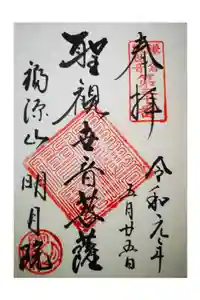 奉拝
令和元年
五月廿五日
聖観世音菩薩
福源山明月院